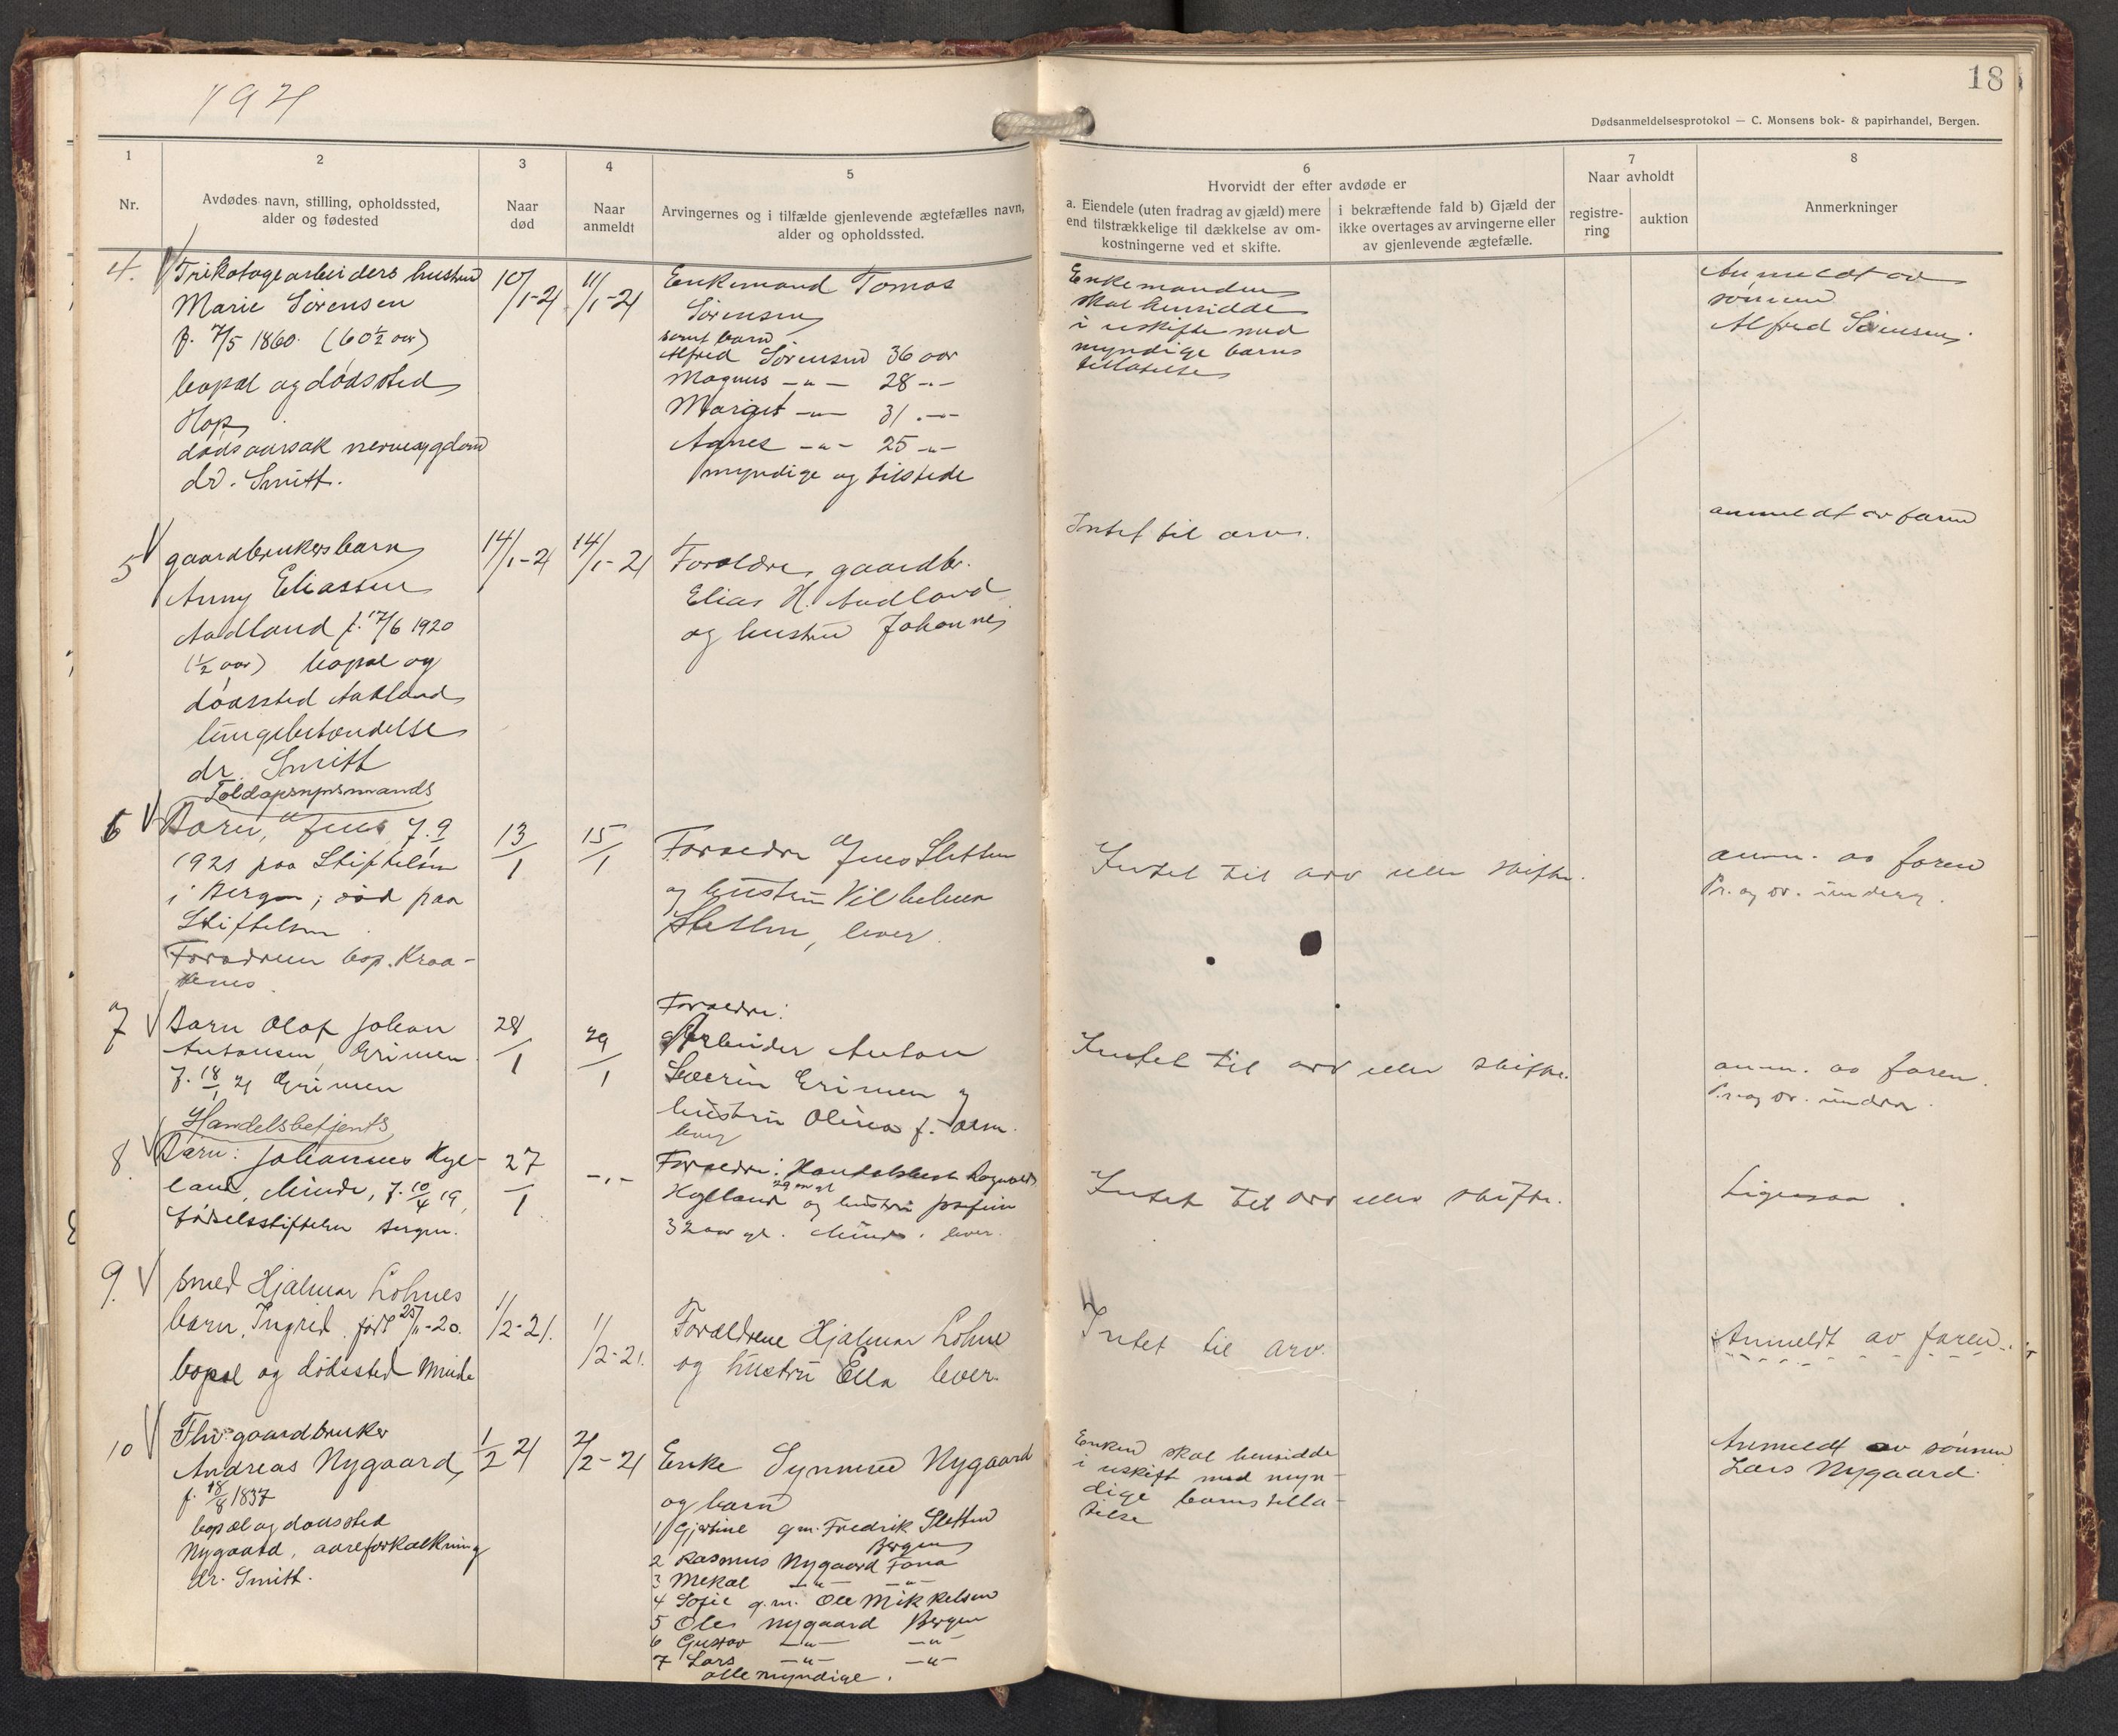 1921
18
Dødsanmeldelsesprotokol — C. Monsens bok- & papirhandel, Bergen.
1
Nr.
2
Avdødes navn, stilling, opholdssted,
alder og fødested
3
Naar
død
4
Naar
anmeldt
5
Arvingernes og i tilfælde gjenlevende ægtefælles navn,
alder og opholdssted.
6
Hvorvidt der efter avdøde er
a. Eiendele (uten fradrag av gjæld) mere
end tilstrækkelige til dækkelse av om-
kostningerne ved et skifte.
i bekræftende fald b) Gjæld der
ikke overtages av arvingerne eller
av gjenlevende ægtefælle.
7
Naar avholdt
registre-
ring
auktion
8
Anmerkninger
4.
Trikotagearbeiders hustru
Marie Sørensen
f. 7/5 1860. (60 1/2 aar)
bopæl og dødssted
Hop
dødsaarsak nervesygdom
dr. Smitt.
10/1-21
11/1-21
Enkemand Tomas
Sørensen
samt barn
Alfred Sørensen 36 aar
Magnus -"- 28 -"-
Margit -"- 31 -"-
Agnes -"- 25 -"-
myndige og tilstede
Enkemanden
skal hensidde
i uskifte med
myndige barns
tillatelse
Anmeldt av
sønnen
Alfred Sørensen.
5
gaardbrukers barn
Anny Eliassen
Aadland f. 17/6 1920
(1/2 aar) bopæl og
dødssted Aadland
lungebetændelse
dr. Smitt
14/1-21
14/1-21
Forældre, gaardbr.
Elias H. Aadland
og hustru Johanne
Intet til arv.
anmeldt av faren
6
Toldopsynsmands
Barn, Jens, f. 9/1
1921 paa Stiftelsen
i Bergen; død paa
Stiftelsen.
Forældrene bop. Kraa-
kenes.
13/1
15/1
Forældre Jens Sletten
og hustru Vilhelma
Sletten, lever.
Intet til arv eller skifte.
anm. av faren
Pr. og ov. underr.
7
Barn Olaf Johan
Antonsen Grimen
f. 18/1 21 Grimen
28/1
29/1
Forældre:
Arbeider Anton
Severin Grimen og
hustru Olina f.
lever
Intet til arv eller skifte.
anm. av faren.
Pr. og ov. underr.
8
Handelsbetjents
Barn: Johannes Hyl-
land, Minde, f. 10/4 19,
Fødselsstiftelsen Bergen.
27/1
-"-
Forældre: Handelsbetj. Ragnvald
Hylland 29 aar gl og hustru Josefine
32 aar gl. Minde. lever.
Intet til arv eller skifte.
Ligesaa.
9.
Smed Hjalmar Lohnes
barn, Ingrid, født 25/11-20.
bopæl og dødssted Minde
1/2-21.
1/2-21.
Forældrene Hjalmar Lohne
og hustru Ella lever.
Intet til arv.
Anmeldt av faren.
10
Fhv. gaardbruker
Andreas Nygaard,
f. 18/8 1837
bopæl og dødssted
Nygaard, aareforkalkning
dr. Smitt.
1/2 21
2/2-21
Enke Synneve Nygaard
og barn
1 Gjertine gm. Fredrik Sletten
Bergen
2 Rasmus Nygaard Fana
3 Mikal -"- -"-
4 Sofie g.m. Ole Mikkelsen
5 Ole Nygaard Bergen
6 Gustav -"- -"-
7 Lars -"- -"-
alle myndige.
Enken skal hensidde
i uskift med myn-
dige barns tilla-
telse
Anmeldt av sønnen
Lars Nygaard.